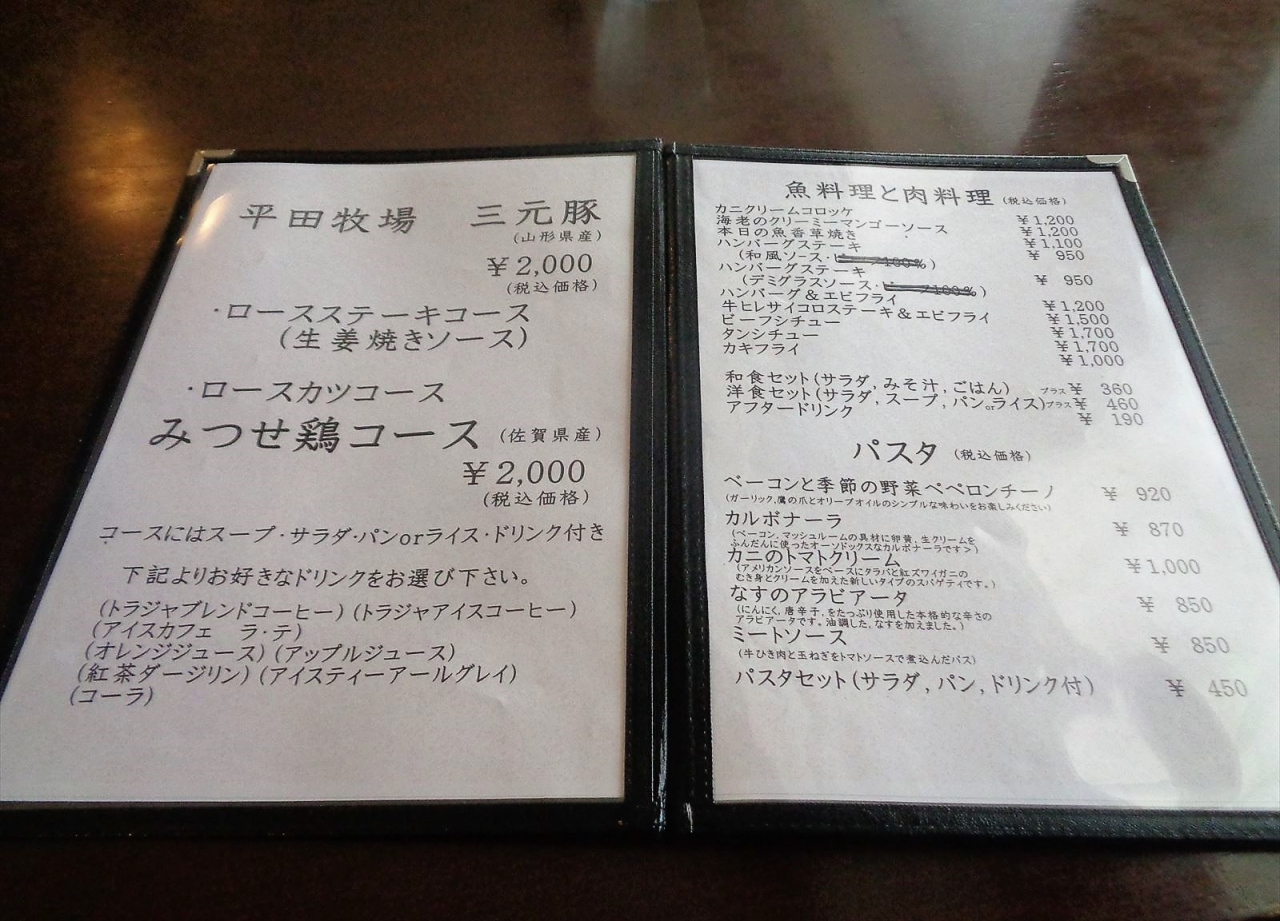 平田牧場 三元豚
(山形県産)
¥2,000
(税込価格)
・ロースステーキコース
(生姜焼きソース)
・ロースカツコース
みつせ鶏コース (佐賀県産)
¥2,000
(税込価格)
コースにはスープ・サラダ・パンorライス・ドリンク付き
下記よりお好きなドリンクをお選び下さい。
(トラジャブレンドコーヒー)(トラジャアイスコーヒー)
(アイスカフェ ラ・テ)
(オレンジジュース)(アップルジュース)
(紅茶ダージリン)(アイスティーアールグレイ)
(コーラ)
魚料理と肉料理 (税込価格)
カニクリームコロッケ ¥1,200
海老のクリーミーマンゴーソース ¥1,200
本日の魚香草焼き ¥1,100
ハンバーグステーキ ¥ 950
(和風ソース・ )
ハンバーグステーキ ¥ 950
(デミグラスソース・ )
ハンバーグ&エビフライ ¥1,200
牛ヒレサイコロステーキ&エビフライ ¥1,500
ビーフシチュー ¥1,700
タンシチュー ¥1,700
カキフライ ¥1,000
和食セット(サラダ,みそ汁,ごはん) プラス¥ 360
洋食セット(サラダ,スープ,パンorライス)プラス¥ 460
アフタードリンク ¥ 190
パスタ (税込価格)
ベーコンと季節の野菜ペペロンチーノ ¥ 920
(ガーリック,鷹の爪とオリーブオイルのシンプルな味わいをお楽しみください)
カルボナーラ ¥ 870
(ベーコン,マッシュルームの具材に卵黄,生クリームを
ふんだんに使ったオーソドックスなカルボナーラです>)
カニのトマトクリーム ¥1,000
(アメリカンソースをベースにタラバと紅ズワイガニの
むき身とクリームを加えた新しいタイプのスパゲティです。)
なすのアラビアータ ¥ 850
(にんにく,唐辛子,をたっぷり使用した本格的な辛さの
アラビアータです。油調した,なすを加えました。)
ミートソース ¥ 850
(牛ひき肉と玉ねぎをトマトソースで煮込んだパス)
パスタセット(サラダ,パン,ドリンク付) ¥ 450